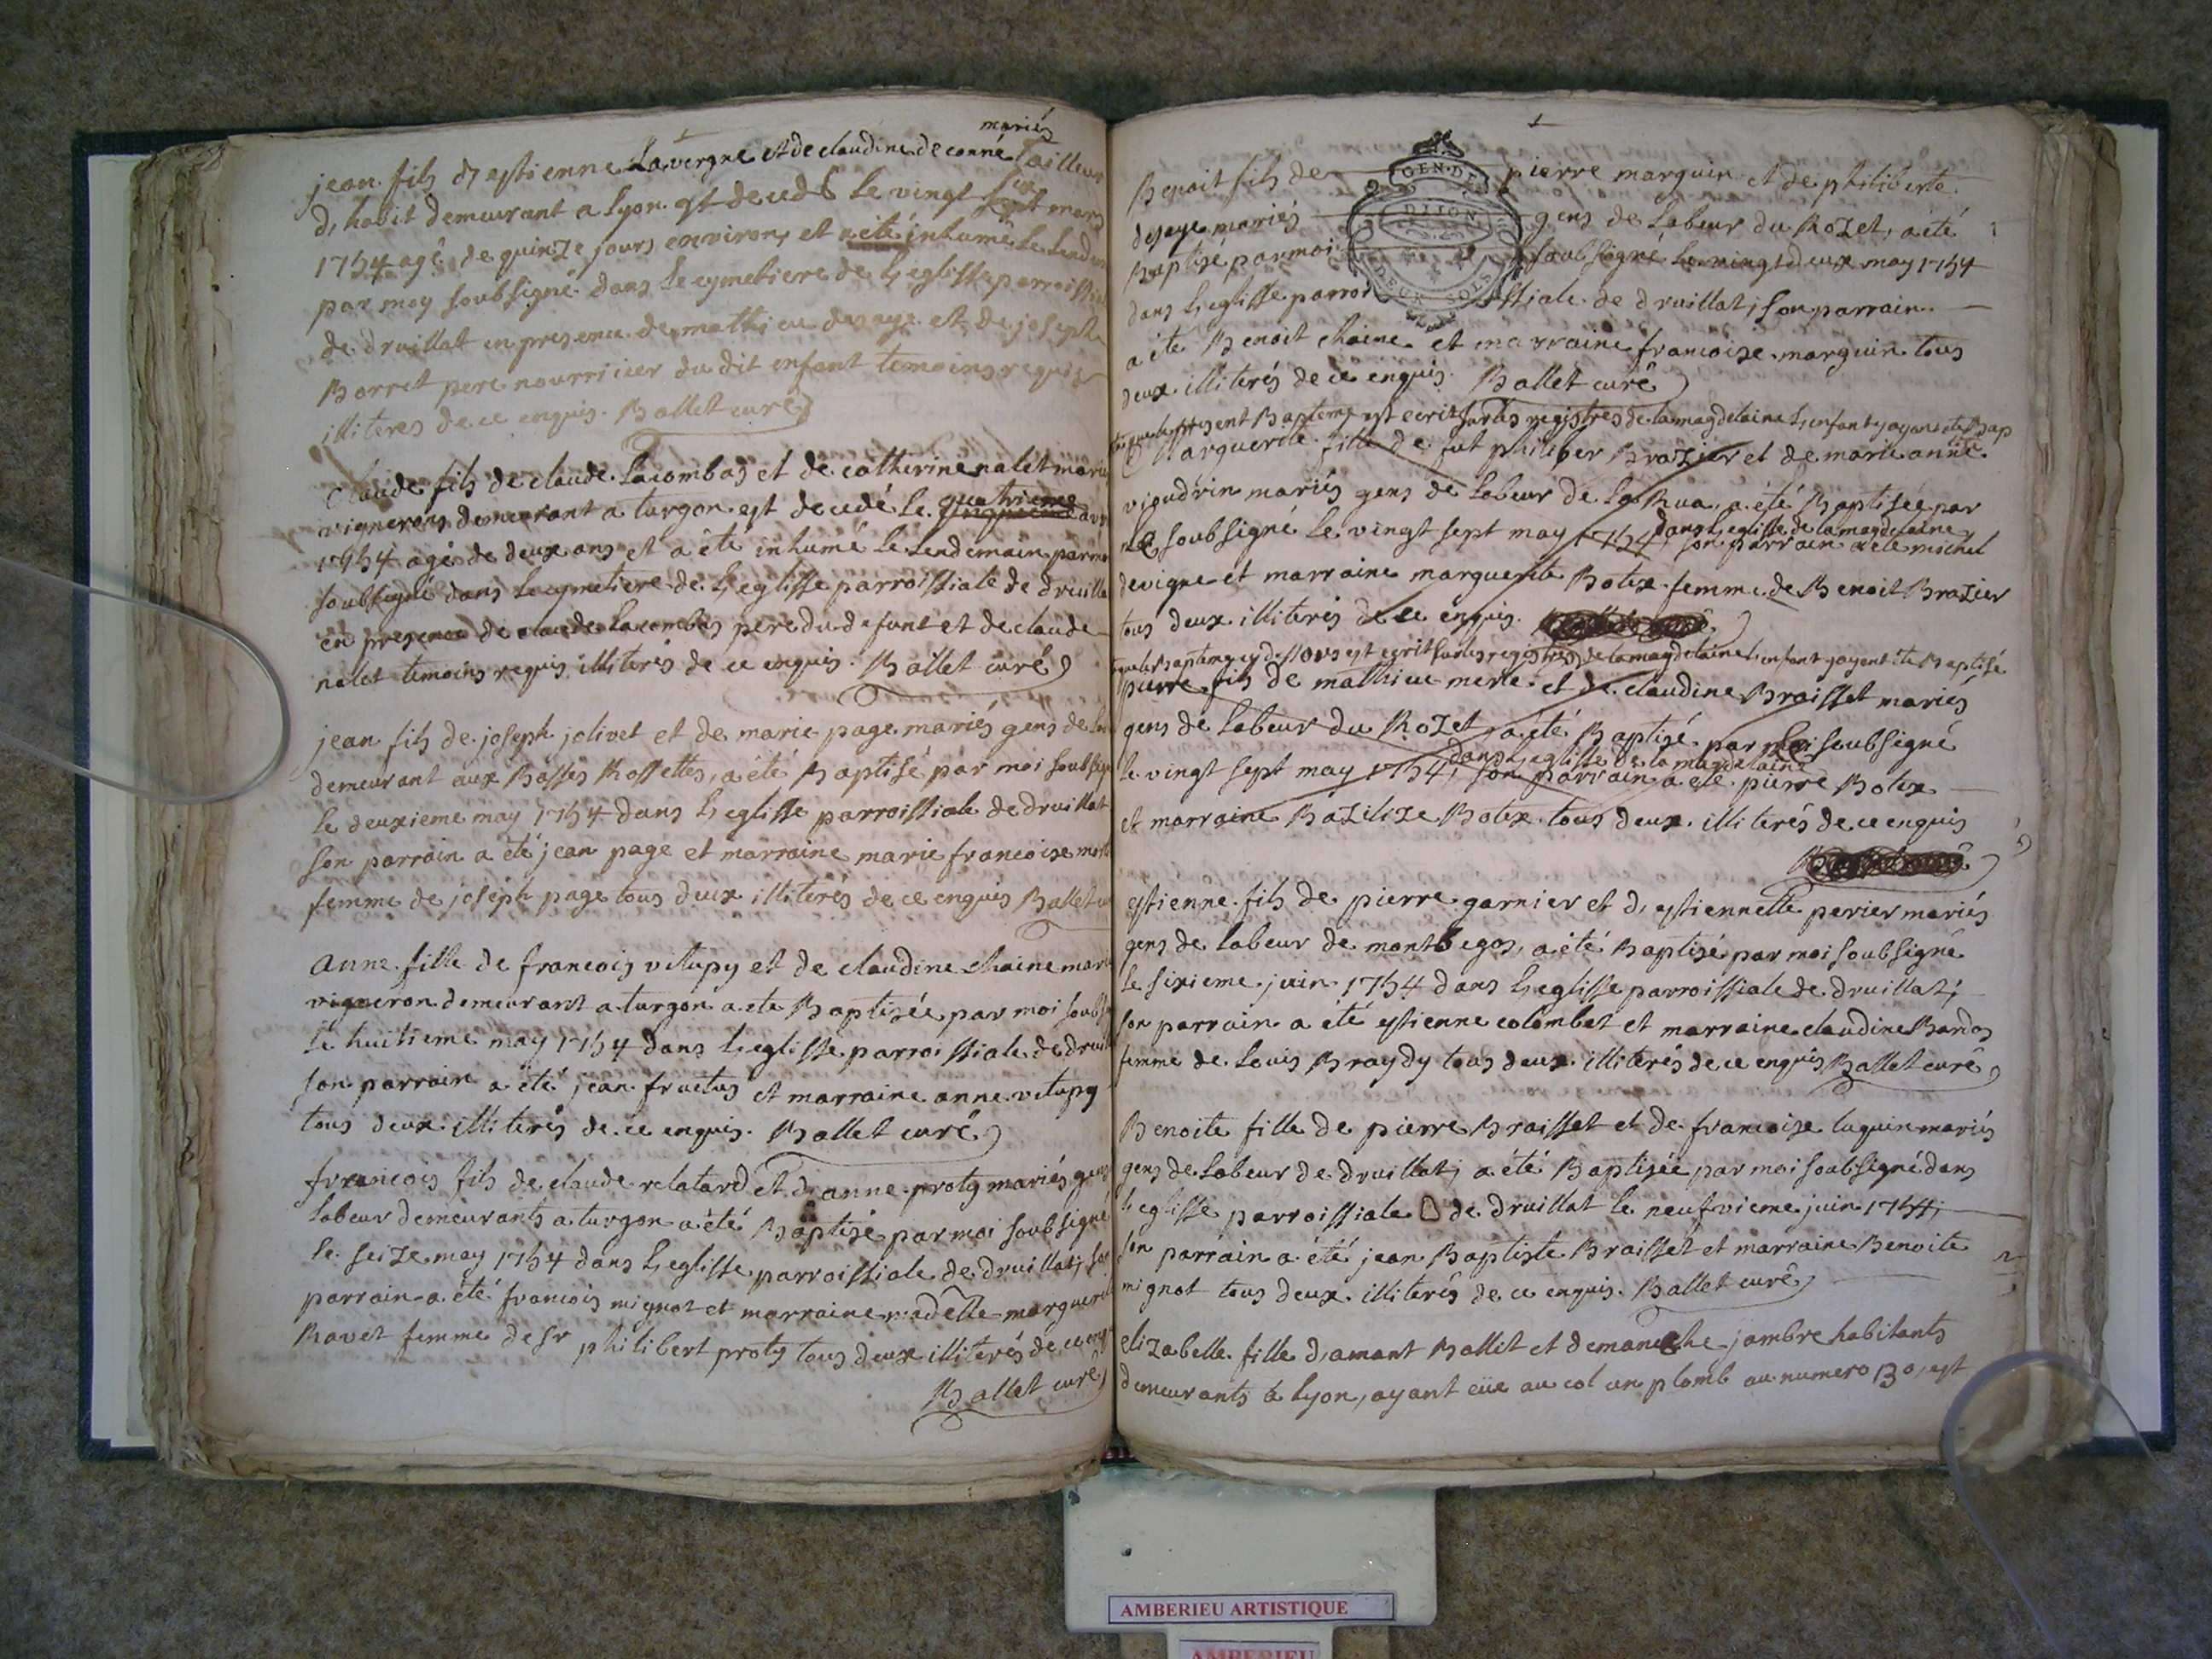 mariés
jean fils d'estienne Lavergne et de claudine deconné tailleur
d'habit demeurant a lyon est decedé le vingt sept mars
1754 agé de quinze jours environ et a été inhumé le lend
par moy soubsigné dans le cymetiere de L'eglisse parroissia
de druillat en presence de mathieu desaye et de joseph
Borret pere nourricier du dit enfant temoins requis
illiteres de ce enquis. Ballet curé
Claude fils de claude Lacombas et de catherine nalet marié
vignerons demeurant a turgon est decedé le quatrieme avr
1754 agé de deux ans et a été inhumé le lendemain par m
soubsigné dans le cymetiere de L'eglisse parroissiale de druilla
en presence de claude Lacombas pere du defunt et de claude
nalet temoins requis illiterés de ce enquis. Ballet curé
jean fils de joseph jolivet et de marie page mariés gens de
demeurant aux Basses Rossettes, a été Baptisé par moi soubsig
le deuxieme may 1754 dans L'eglisse parroissiale de druillat
son parrain a été jean page et marraine marie francoise
femme de joseph page tous deux illiterés de ce enquis Ballet
anne fille de francois vitupy et de claudine chaine mari
vigneron demeurant a turgon a ete Baptisée par moi soubs
le huitieme may 1754 dans L'eglisse parroissiale de druil
son parrain a été jean fructus et marraine anne vitupy
tous deux illiterés de ce enquis. Ballet curé
francois fils de claude relatard et d'anne proty mariés gens
labeur demeurants a turgon a été Baptisé par moi soubsigné
le seize may 1754 dans L'eglisse parroissiale de druillat, son
parrain a été francois mignot et marraine madelle marguerit
Ravet femme de sr philibert proty tous deux illiterés de ce enq
Ballet curé
GEN. DE
DIJON
DEUX SOLS
Benoit fils de pierre marguin et de philiberte
desaye mariés gens de Labeur du Rozet, a été
Baptisé par moi soubsigné le vingt deux may 1754
dans L'eglisse parroissiale de druillat, son parrain
a été Benoit chaine et marraine francoise marguin tous
deux illiterés de ce enquis. Ballet curé
que le present Bapteme est ecrit sur les registres de la magdelaine L'enfant y ayant été Bap
tisé
Marguerite fille de fut philiber Brazier et de marie anne
vioudrin mariés gens de Labeur de la Rua, a été Baptisée par
soubsigné le vingt sept may 1754, son parrain a été michel
dans L'eglisse de la magdelaine
devigne et marraine marguerite Botex femme de Benoit Brazier
tous deux illiterés de ce enquis.
que le Bapteme cy dessous est ecrit sur les registres de la magdelaine L'enfant y ayant été Baptisé
pierre fils de mathieu merle et de claudine Braisset mariés
gens de Labeur du Rozet, a été Baptisé par moi soubsigné
le vingt sept may 1754, son parrain a été pierre Botex
dans L'eglisse de la magdelaine
et marraine Bazilize Botex tous deux illiterés de ce enquis
estienne fils de pierre garnier et d'estiennette perier mariés
gens de labeur de montbegos, a été Baptisé par moi soubsigné
le sixieme juin 1754 dans L'eglisse parroissiale de druillat;
son parrain a été estienne colombet et marraine claudine Bardos
femme de Louis Braydy tous deux illiterés de ce enquis Ballet curé
Benoite fille de pierre Braisset et de francoise luquin mariés
gens de Labeur de druillat; a été Baptisée par moi soubsigné dans
L'eglisse parroissiale de druillat le neufvieme juin 1754;
son parrain a été jean Baptiste Braisset et marraine Benoite
mignot tous deux illiterés de ce enquis. Ballet curé
elizabelle fille d'amant Ballet et de jambre habitants
demeurants à Lyon, ayant eüe au col un plomb au numero 130, est
AMBERIEU ARTISTIQUE
AMBERIEU